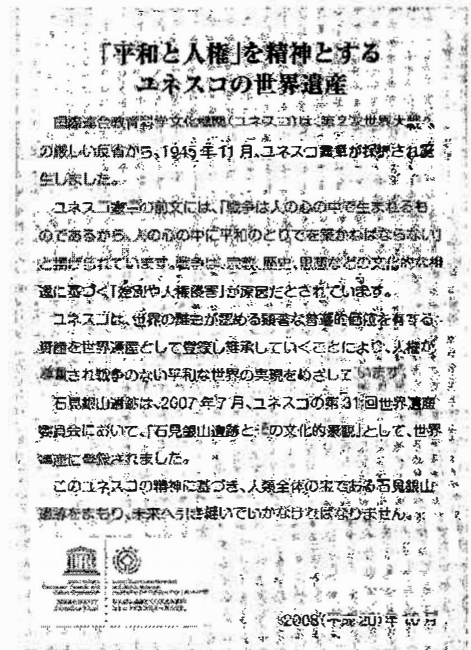 「平和と人権」を精神とする
ユネスコの世界遺産
国際連合教育科学文化機関(ユネスコ)は、第2次世界大戦へ
の厳しい反省から、1945年11月、ユネスコ憲章が採択され誕
生しました。
ユネスコ憲章の前文には、「戦争は人の心の中で生まれるも
のであるから、人の心の中に平和のとりでを築かねばならない」
と掲げられています。戦争は、宗教、歴史、思想などの文化的な相
違に基づく「差別や人権侵害」が原因だとされています。
ユネスコは、世界の誰もが認める顕著な普遍的価値を有する
資産を世界遺産として登録し継承していくことにより、人権が
尊重され戦争のない平和な世界の実現をめざしています。
石見銀山遺跡は、2007年7月、ユネスコの第31回世界遺産
委員会において、「石見銀山遺跡とその文化的景観」として、世界
遺産に登録されました。
このユネスコの精神に基づき、人類全体の宝である石見銀山
遺跡をまもり、未来へ引き継いでいかなければなりません。
2008(平成20)年10月